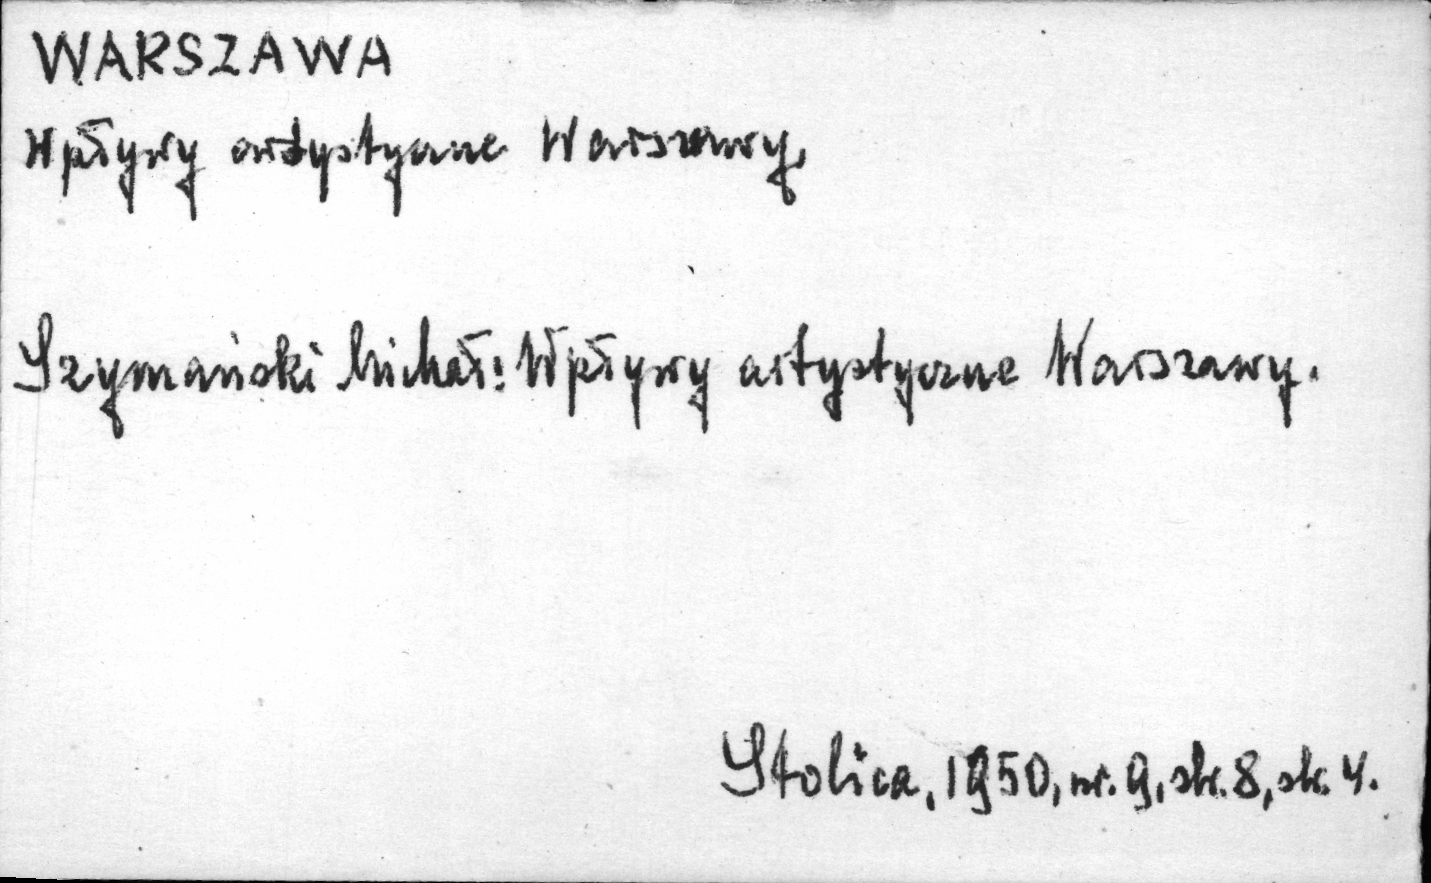 WARSZAWA
Wpływy artystyczne Warszawy.
Szymański Michał: Wpływy artystyczne Warszawy.
Stolica, 1950, nr. 9, str. 8, il. 4.